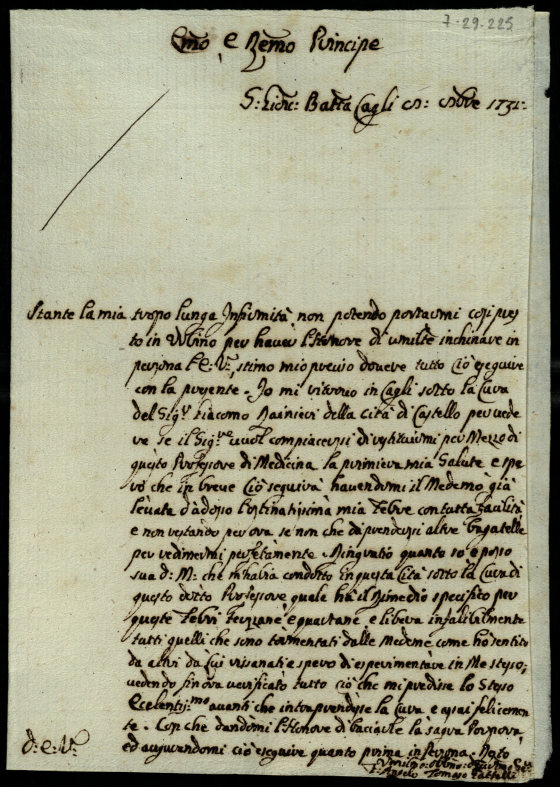 7-29.225
Emo e Rmo Principe
Batta Cagli 9bre 1731
Stante la mia tropo lunga Infirmità non potendo portarmi così pres
to in Urbino per haver l'Honore di umilte inchinare in
persona l'E: V:, stimo mio preciso dovere tutto ciò eseguire
con la presente. Io mi ritrovo in Cagli sotto la Cura
del Sigr Giacomo Rainieri della Città di Castello per vede
re se il Sigre vuol compiacersi di restituirmi per Mezzo di
questo Professore di Medicina la primiera mia Salute e spe
ro che in breve ciò seguirà havendomi il Medemo già
levata d'adosso l'ostinatissima mia Febre con tutta facilità
e non restando per ora se non che da prendersi altre bagatelle
per redimermi perfetamente. Ringratio quanto so e posso
sua d: M: che m'habia condotto in questa Cità sotto la Cura di
questo detto Professore quale ha il Rimedio specifico per
queste Febri Terzane e quartane e libera infalibilmente
tutti quelli che sono tormentati dalle Medeme come ho sentito
da altri da Lui risanati e spero di esperimentare in Me stesso;
vedendo fin ora verificato tutto ciò che mi predisse lo Stesso
Ecelentismo avanti che intraprendesse la Cura e assai felicemen
te. Con che dandomi l'Honore di baciarle la sagra Porpora,
ed augurandomi ciò eseguire quanto prima in persona. Resto
d: E: V:
Angelo Tomaso